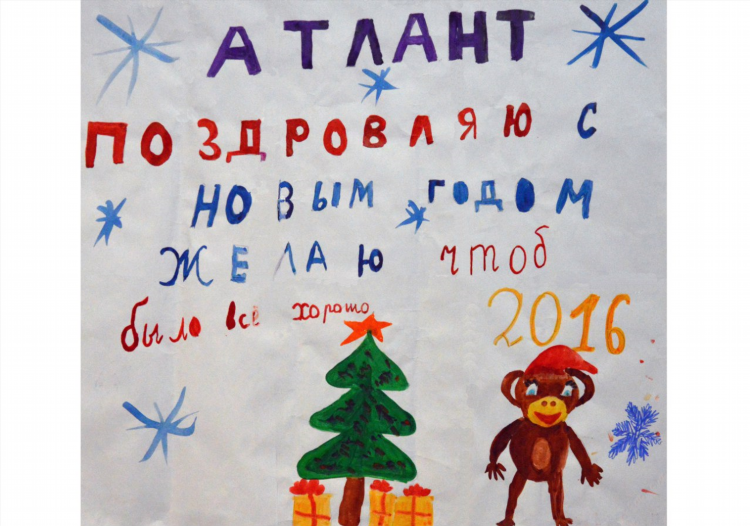 АТЛАНТ
ПОЗДРОВЛЯЮ С
НОВЫМ ГОДОМ
ЖЕЛАЮ чтоб
было всё хорошо
2016